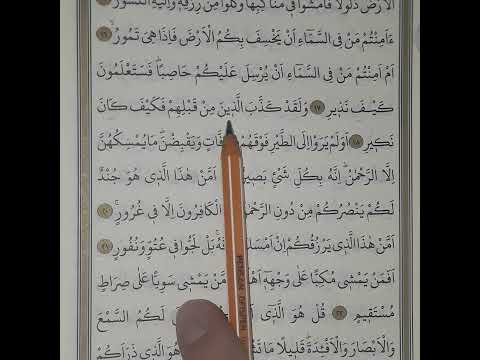 الْاَرْضَ ذَلُولًا فَامْشُوا ف۪ي مَنَاكِبِهَا وَكُلُوا مِنْ رِزْقِه۪ وَاِلَيْهِ النُّشُورُ
ءَاَمِنْتُمْ مَنْ فِي السَّمَٓاءِ اَنْ يَخْسِفَ بِكُمُ الْاَرْضَ فَاِذَا هِيَ تَمُورُۙ ﴿١٦﴾
اَمْ اَمِنْتُمْ مَنْ فِي السَّمَٓاءِ اَنْ يُرْسِلَ عَلَيْكُمْ حَاصِبًاۜ فَسَتَعْلَمُونَ
كَيْفَ نَذ۪يرِ ﴿١٧﴾ وَلَقَدْ كَذَّبَ الَّذ۪ينَ مِنْ قَبْلِهِمْ فَكَيْفَ كَانَ
نَك۪يرِ ﴿١٨﴾ اَوَلَمْ يَرَوْا اِلَى الطَّيْرِ فَوْقَهُمْ فَّاتٍ وَيَقْبِضْنَۜ مَا يُمْسِكُهُنَّ
اِلَّا الرَّحْمٰنُۜ اِنَّهُ بِكُلِّ شَيْءٍ بَص۪ير اَمَّنْ هٰذَا الَّذ۪ي هُوَ جُنْدٌ
لَكُمْ يَنْصُرُكُمْ مِنْ دُونِ الرَّحْمٰ الْكَافِرُونَ اِلَّا ف۪ي غُرُورٍۚ ﴿٢٠﴾
اَمَّنْ هٰذَا الَّذ۪ي يَرْزُقُكُمْ اِنْ اَمْسَكَ قَهُۚ بَلْ لَجُّوا ف۪ي عُتُوٍّ وَنُفُورٍ ﴿٢١﴾
اَفَمَنْ يَمْش۪ي مُكِبًّا عَلٰى وَجْهِه۪ٓ اَهْدٰ مَّنْ يَمْش۪ي سَوِيًّا عَلٰى صِرَاطٍ
مُسْتَق۪يمٍ ﴿٢٢﴾ قُلْ هُوَ الَّذ۪ٓي لَكُمُ السَّمْعَ
وَالْاَبْصَارَ وَالْاَفْـِٔدَةَۜ قَل۪يلًا مَا هُوَ الَّذ۪ي ذَرَاَكُمْ